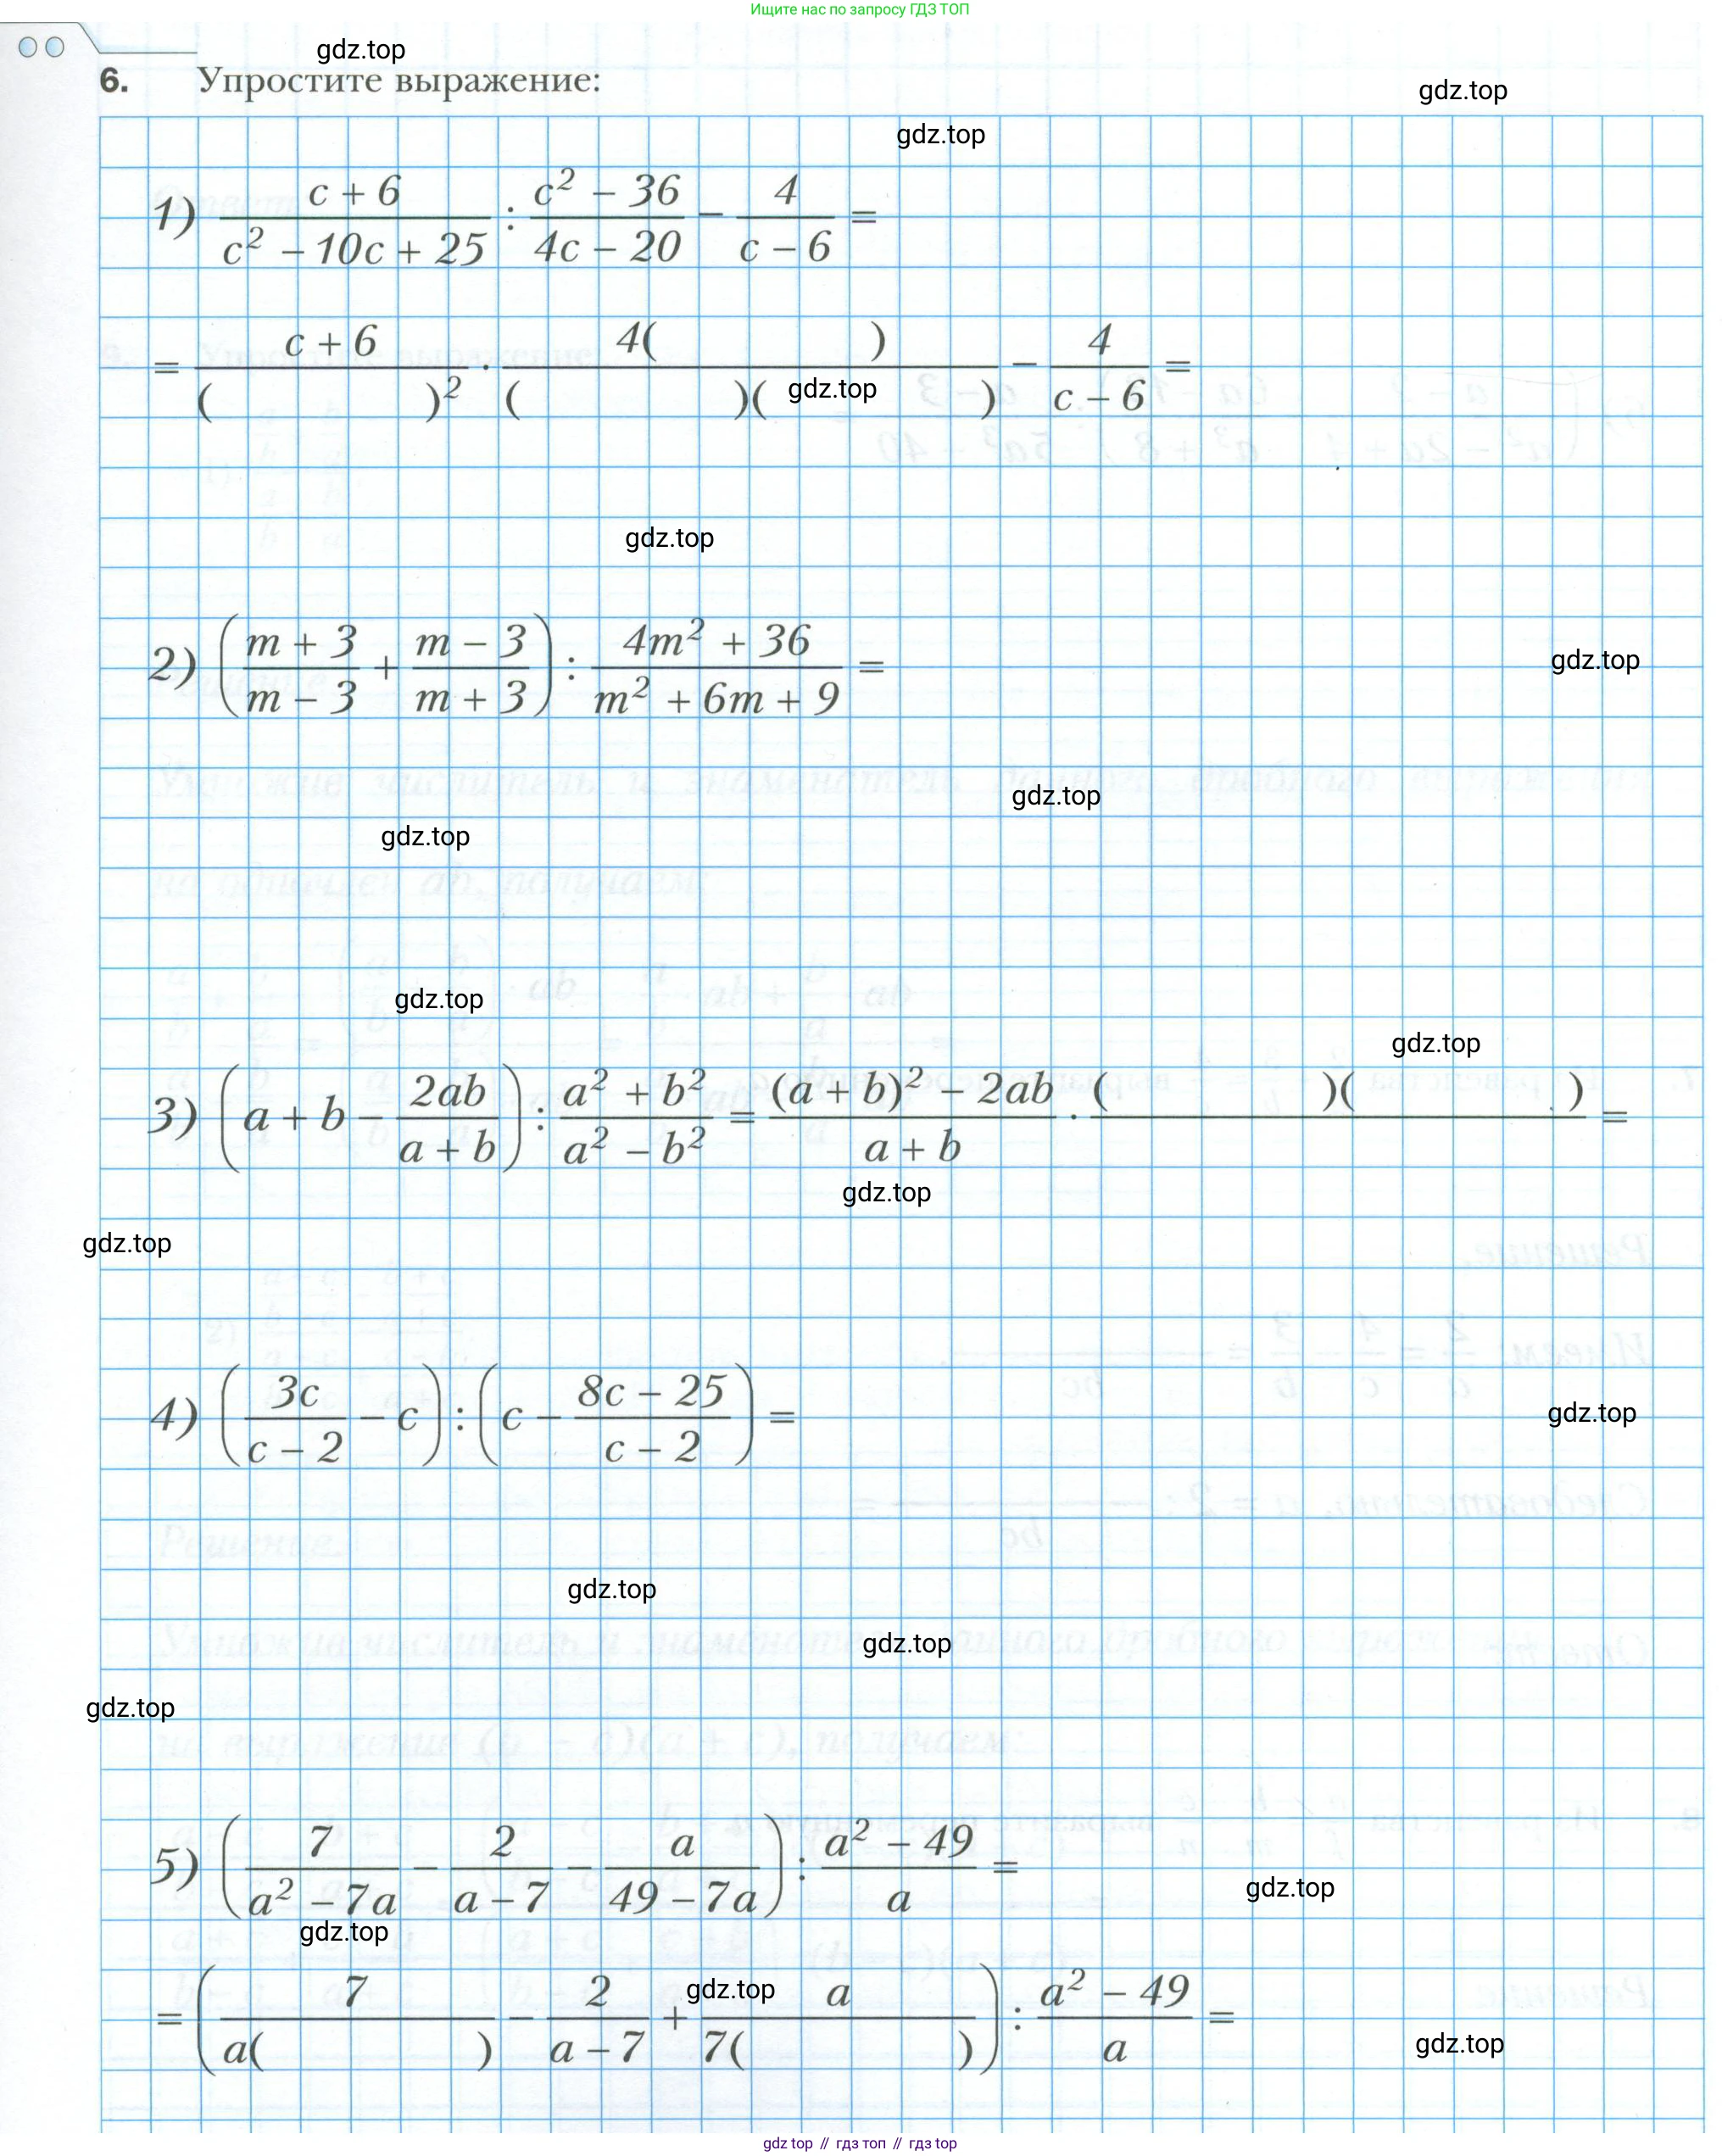 Ищите нас по запросу ГДЗ ТОП
gdz.top
6. Упростите выражение:
gdz.top
gdz.top
1) (c + 6)/(c² − 10c + 25) : (c² − 36)/(4c − 20) − 4/(c − 6) =
= (c + 6)/( )² · 4( )/( )( ) − 4/(c − 6) =
gdz.top
gdz.top
2) ((m + 3)/(m − 3) + (m − 3)/(m + 3)) : (4m² + 36)/(m² + 6m + 9) =
gdz.top
gdz.top
gdz.top
gdz.top
gdz.top
3) (a + b − 2ab/(a + b)) : (a² + b²)/(a² − b²) = ((a + b)² − 2ab)/(a + b) · ( )( )/ =
gdz.top
gdz.top
4) (3c/(c − 2) − c) : (c − (8c − 25)/(c − 2)) =
gdz.top
gdz.top
gdz.top
gdz.top
5) (7/(a² − 7a) − 2/(a − 7) − a/(49 − 7a)) : (a² − 49)/a =
gdz.top
gdz.top
= (7/a( ) − 2/(a − 7) + a/7( )) : (a² − 49)/a =
gdz.top
gdz.top
gdz top // гдз топ // гдз top